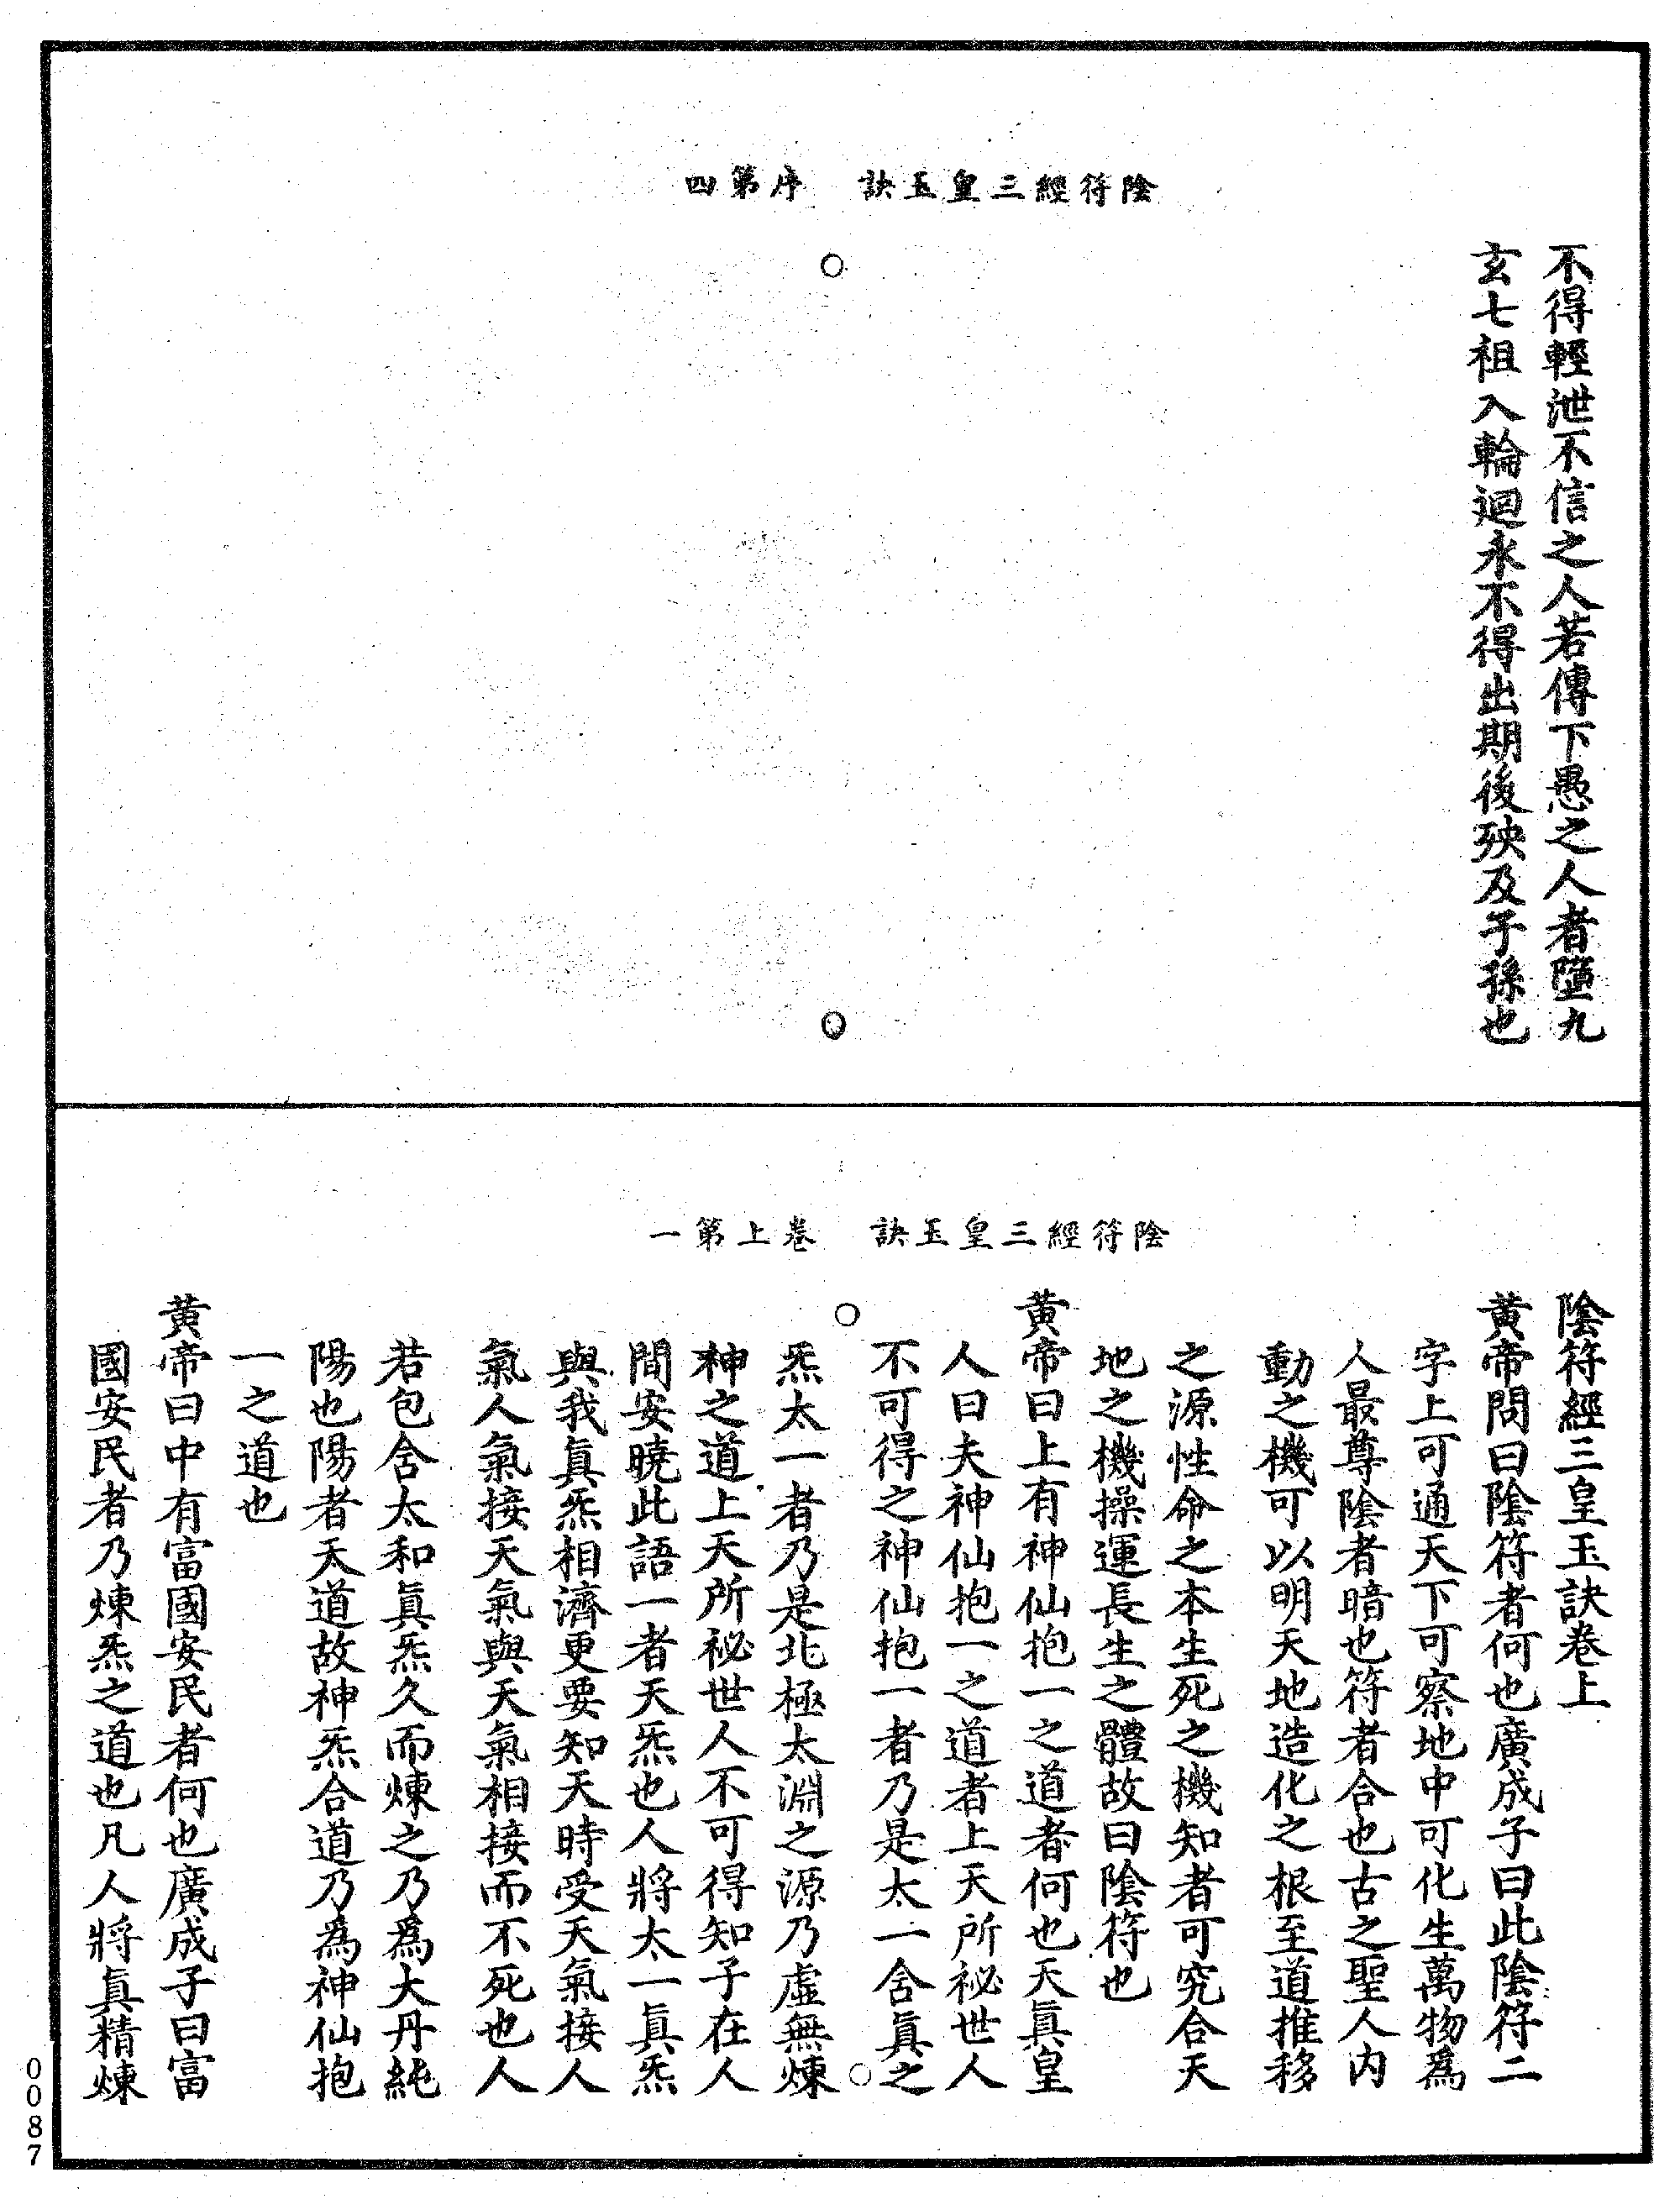 陰符經三皇玉訣　序第四
不得輕泄不信之人若傳下愚之人者墮九
玄七祖入輪迴永不得出期後殃及子孫也
陰符經三皇玉訣　卷上第一
陰符經三皇玉訣卷上
黃帝問曰陰符者何也廣成子曰此陰符二
字上可通天下可察地中可化生萬物爲
人最尊陰者暗也符者合也古之聖人內
動之機可以明天地造化之根至道推移
之源性命之本生死之機知者可究合天
地之機操運長生之體故曰陰符也
黃帝曰上有神仙抱一之道者何也天眞皇
人曰夫神仙抱一之道者上天所祕世人
不可得之神仙抱一者乃是太一含眞之
炁太一者乃是北極太淵之源乃虛無煉
神之道上天所祕世人不可得知子在人
間安曉此語一者天炁也人將太一眞炁
與我眞炁相濟更要知天時受天氣接人
氣人氣接天氣與天氣相接而不死也人
若包含太和眞炁久而煉之乃爲大丹純
陽也陽者天道故神炁合道乃爲神仙抱
一之道也
黃帝曰中有富國安民者何也廣成子曰富
國安民者乃煉炁之道也凡人將眞精煉
0087